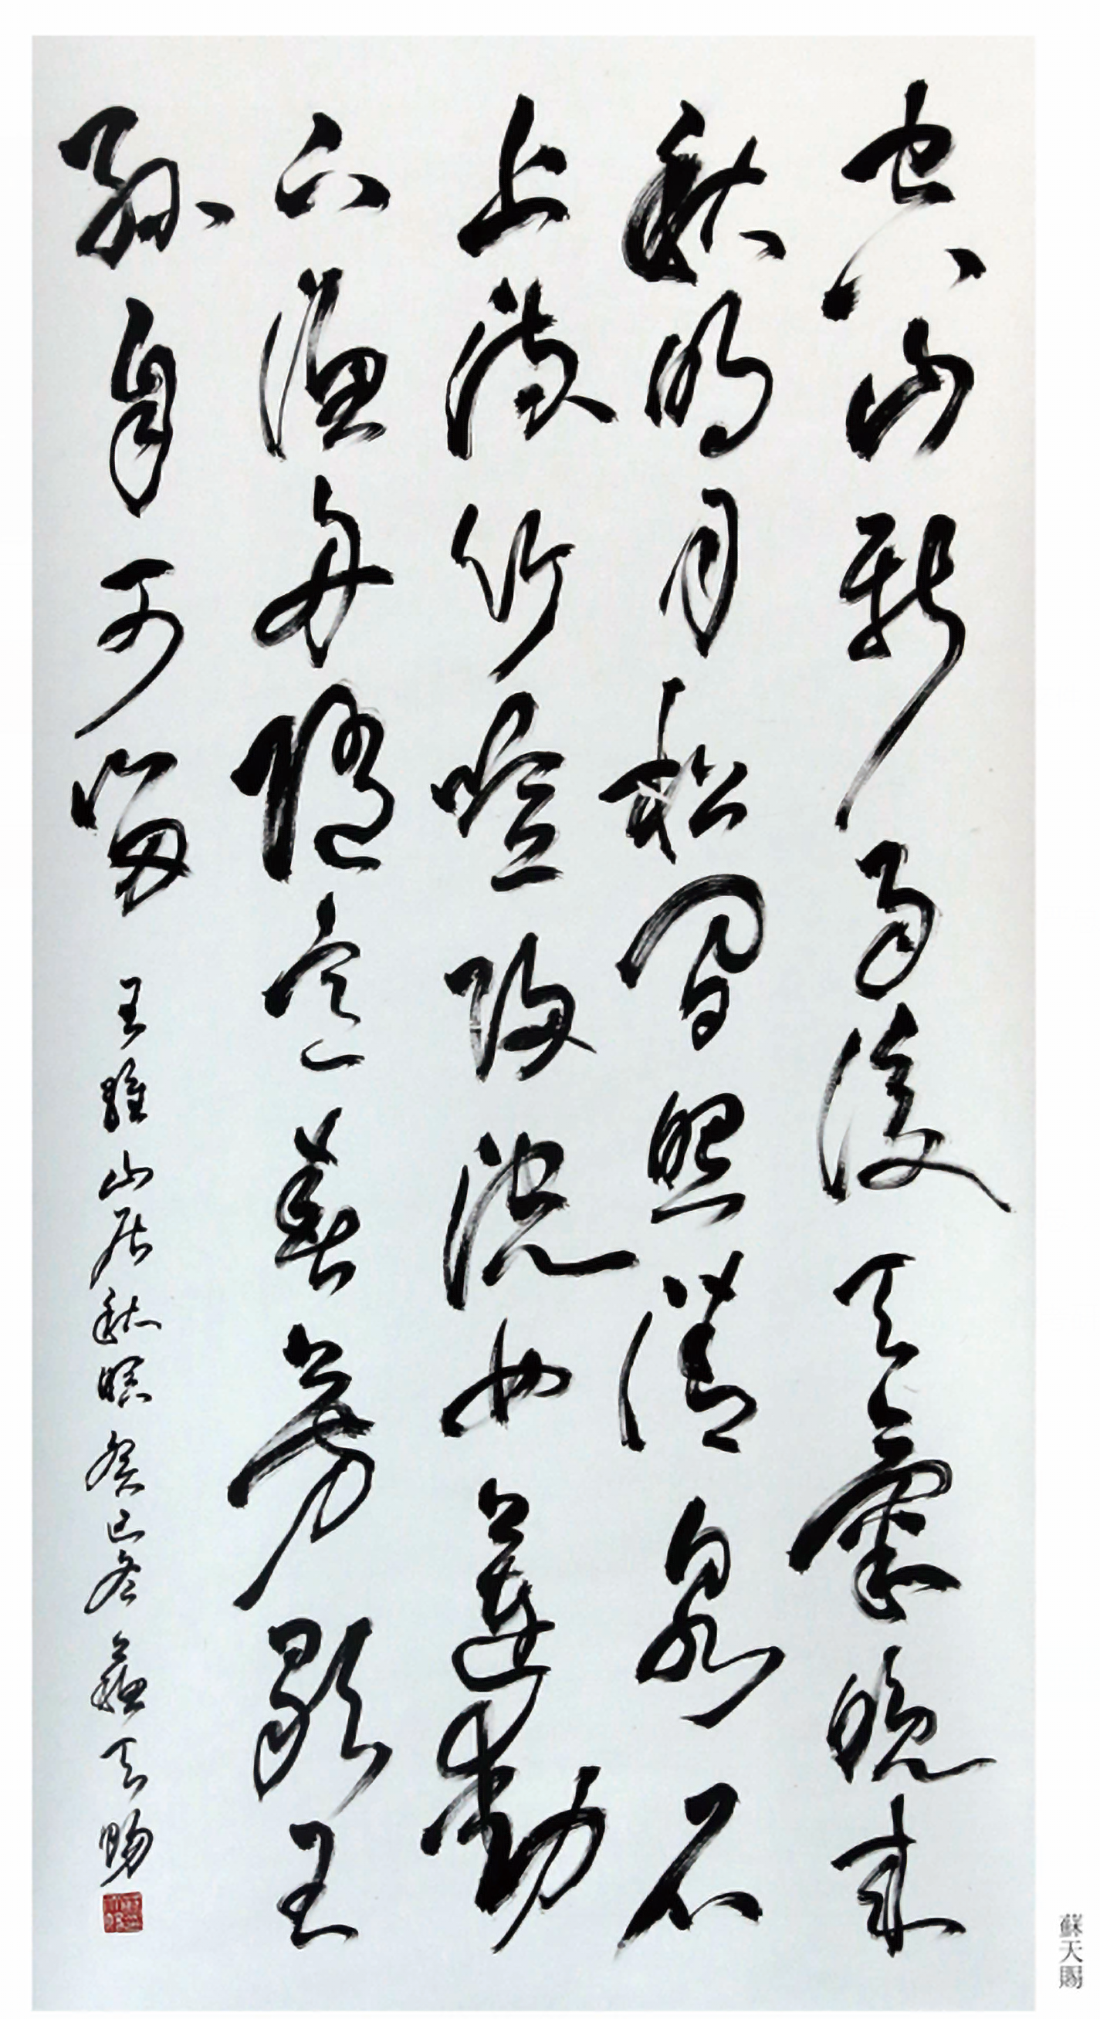 空山新雨後天氣晚來
秋明月松間照清泉石
上流竹喧歸浣女蓮動
下漁舟隨意春芳歇王
孫自可留 王維山居秋暝癸巳冬蘇天賜
蘇天賜